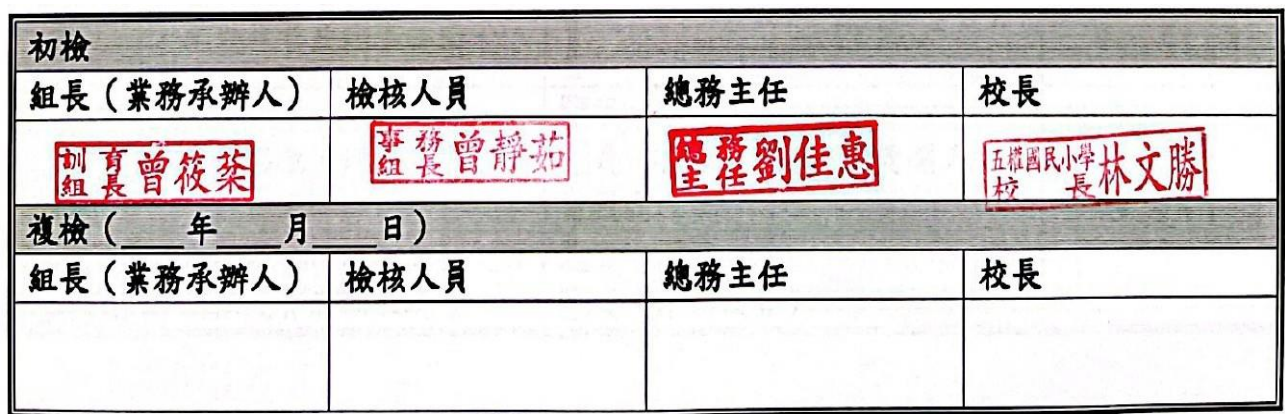 初檢
組長(業務承辦人) 檢核人員 總務主任 校長
訓育組長 曾筱棻 事務組長 曾靜茹 總務主任 劉佳惠 五權國民小學校長 林文勝
複檢(____年____月____日)
組長(業務承辦人) 檢核人員 總務主任 校長